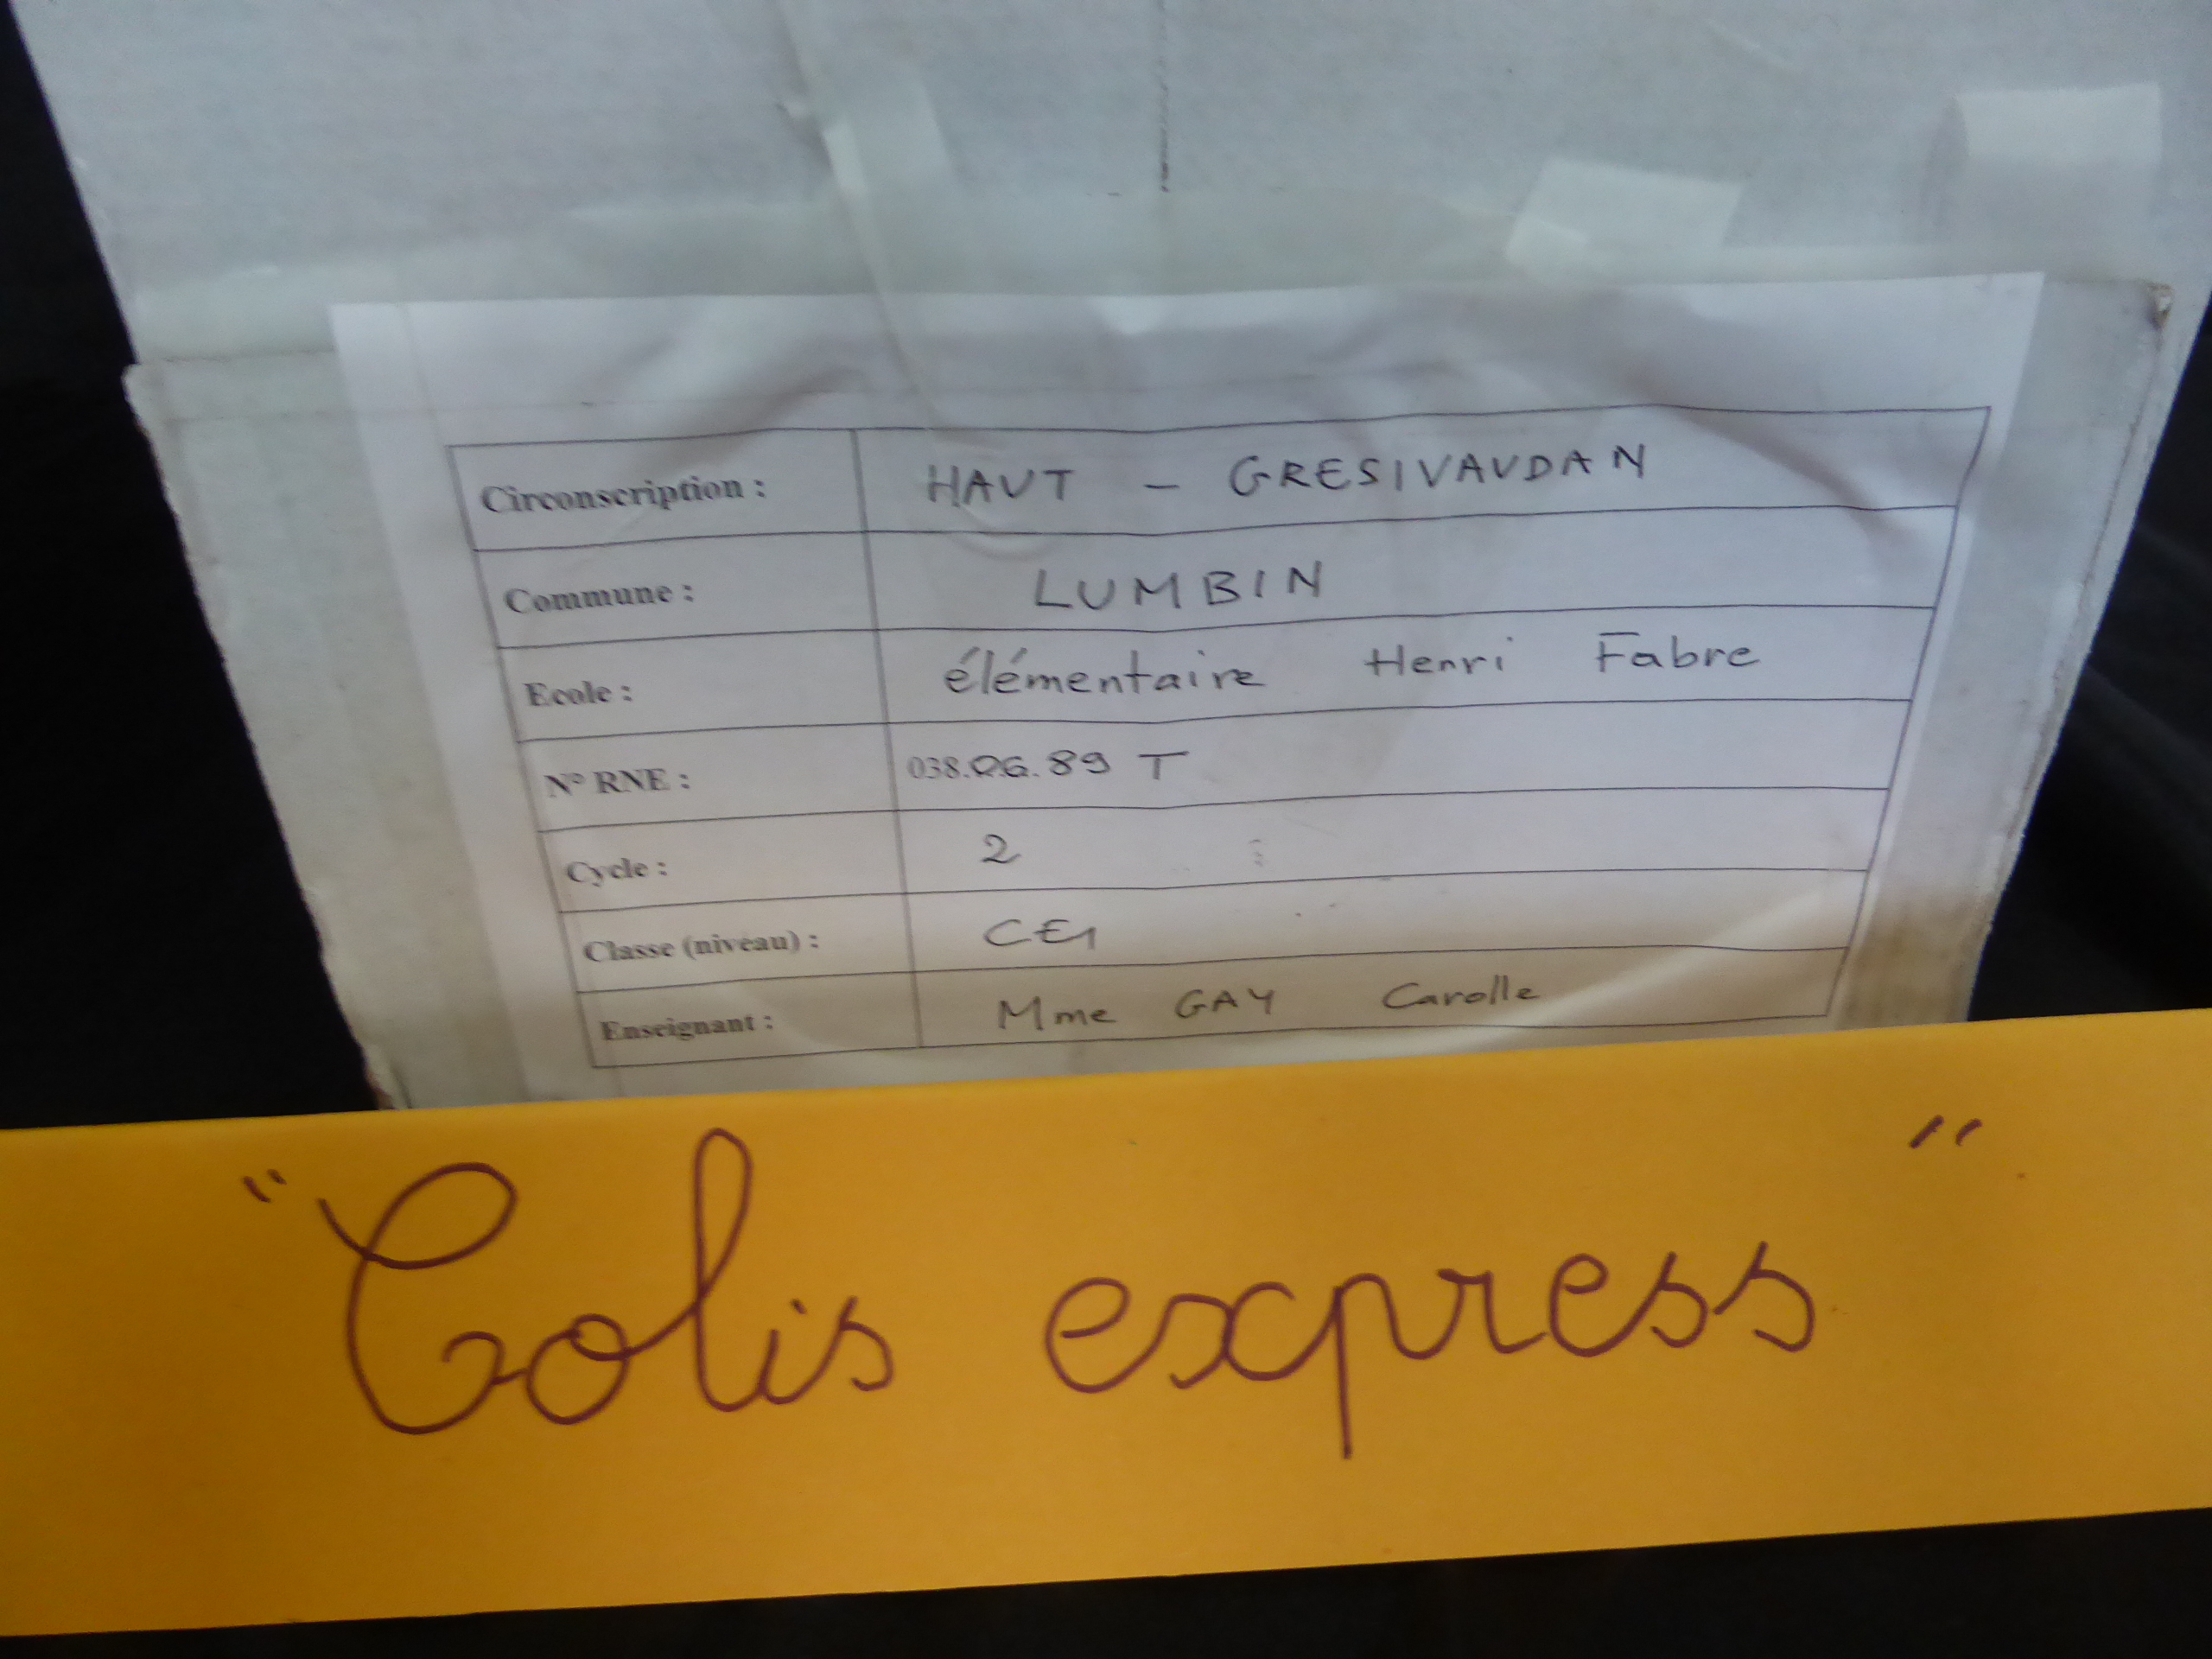 Circonscription : HAUT - GRESIVAUDAN
Commune : LUMBIN
Ecole : élémentaire Henri Fabre
N° RNE : 038.06.89 T
Cycle : 2
Classe (niveau) : CE1
Enseignant : Mme GAY Carolle
"Colis express"